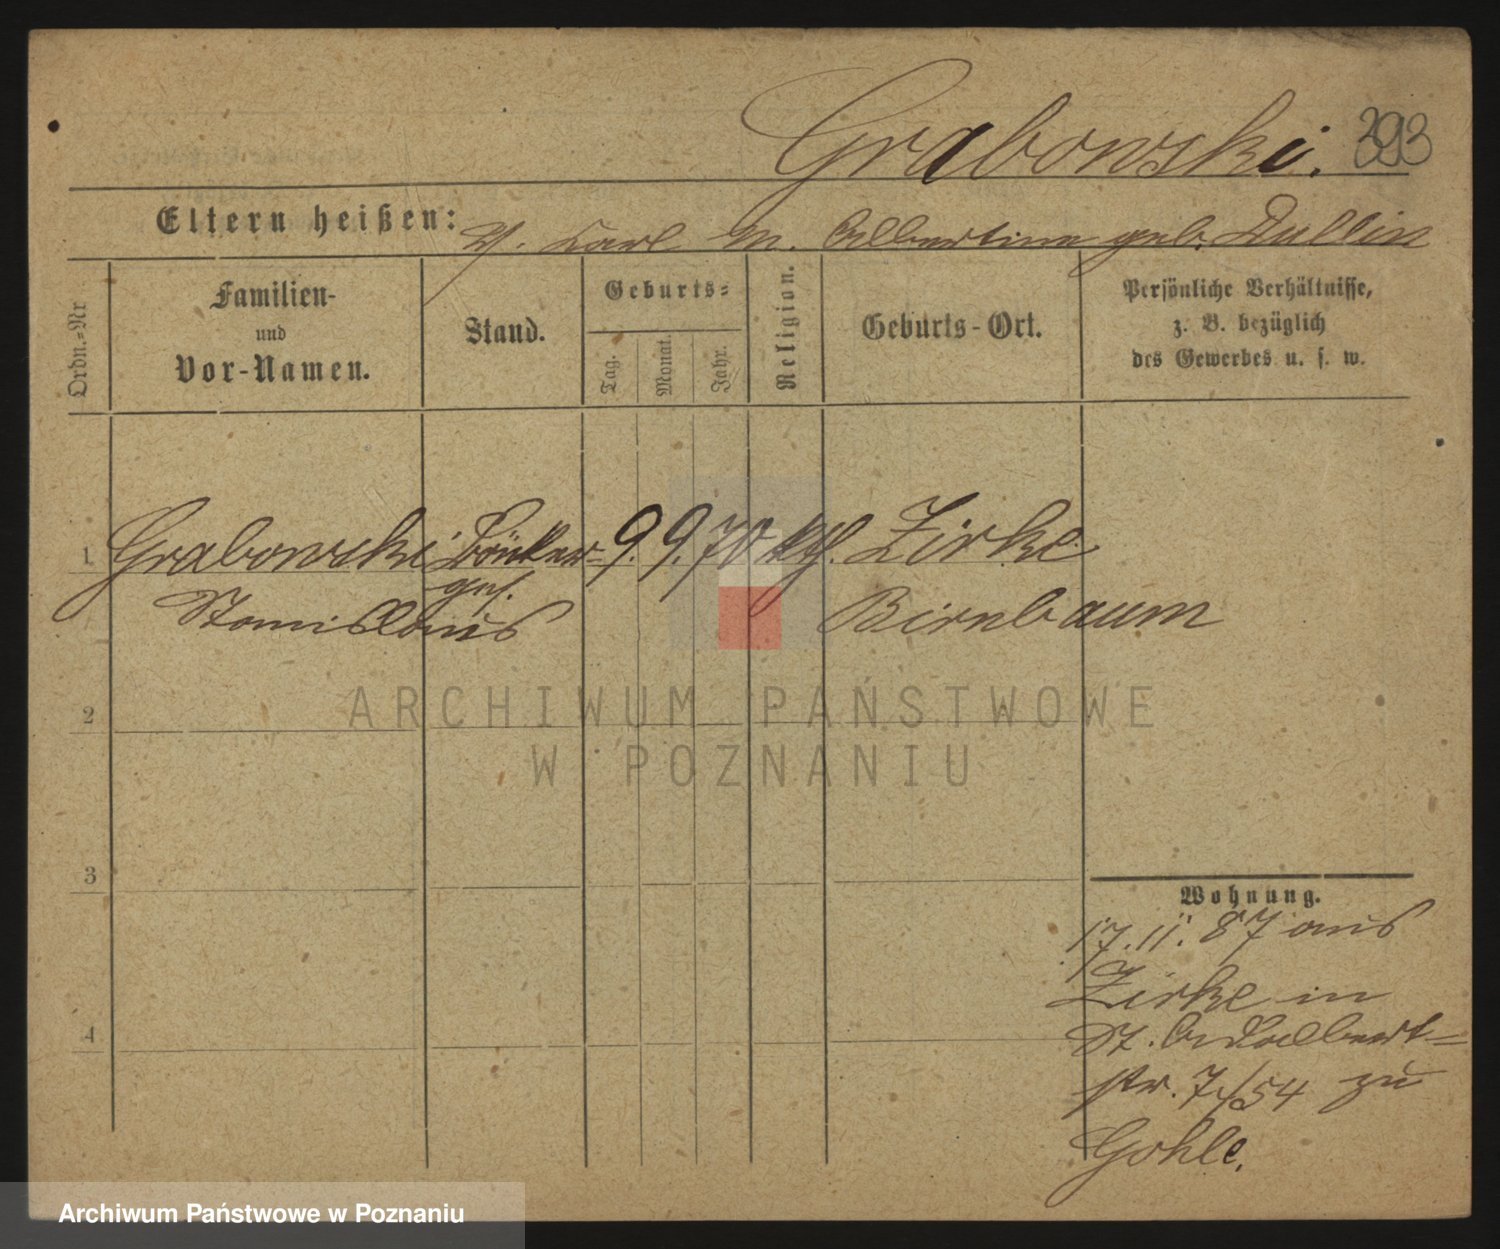 Grabowski. 393
Eltern heißen: V. Karl M. Albertine geb.
Ordn.=Nr
Familien-
und
Vor-Namen.
Stand.
Geburts=
Tag.
Monat.
Jahr.
Religion.
Geburts-Ort.
Persönliche Verhältnisse,
z. B. bezüglich
des Gewerbes u. s. w.
1 Grabowski 9. 9. 70 kth. Zirke
ges.
Stanislaus Birnbaum
2
3
4
Wohnung.
17.11.87 aus
Zirke in
St. Adalbert=
str. 7/54 zu
Gohle.
ARCHIWUM PAŃSTWOWE
W POZNANIU
Archiwum Państwowe w Poznaniu